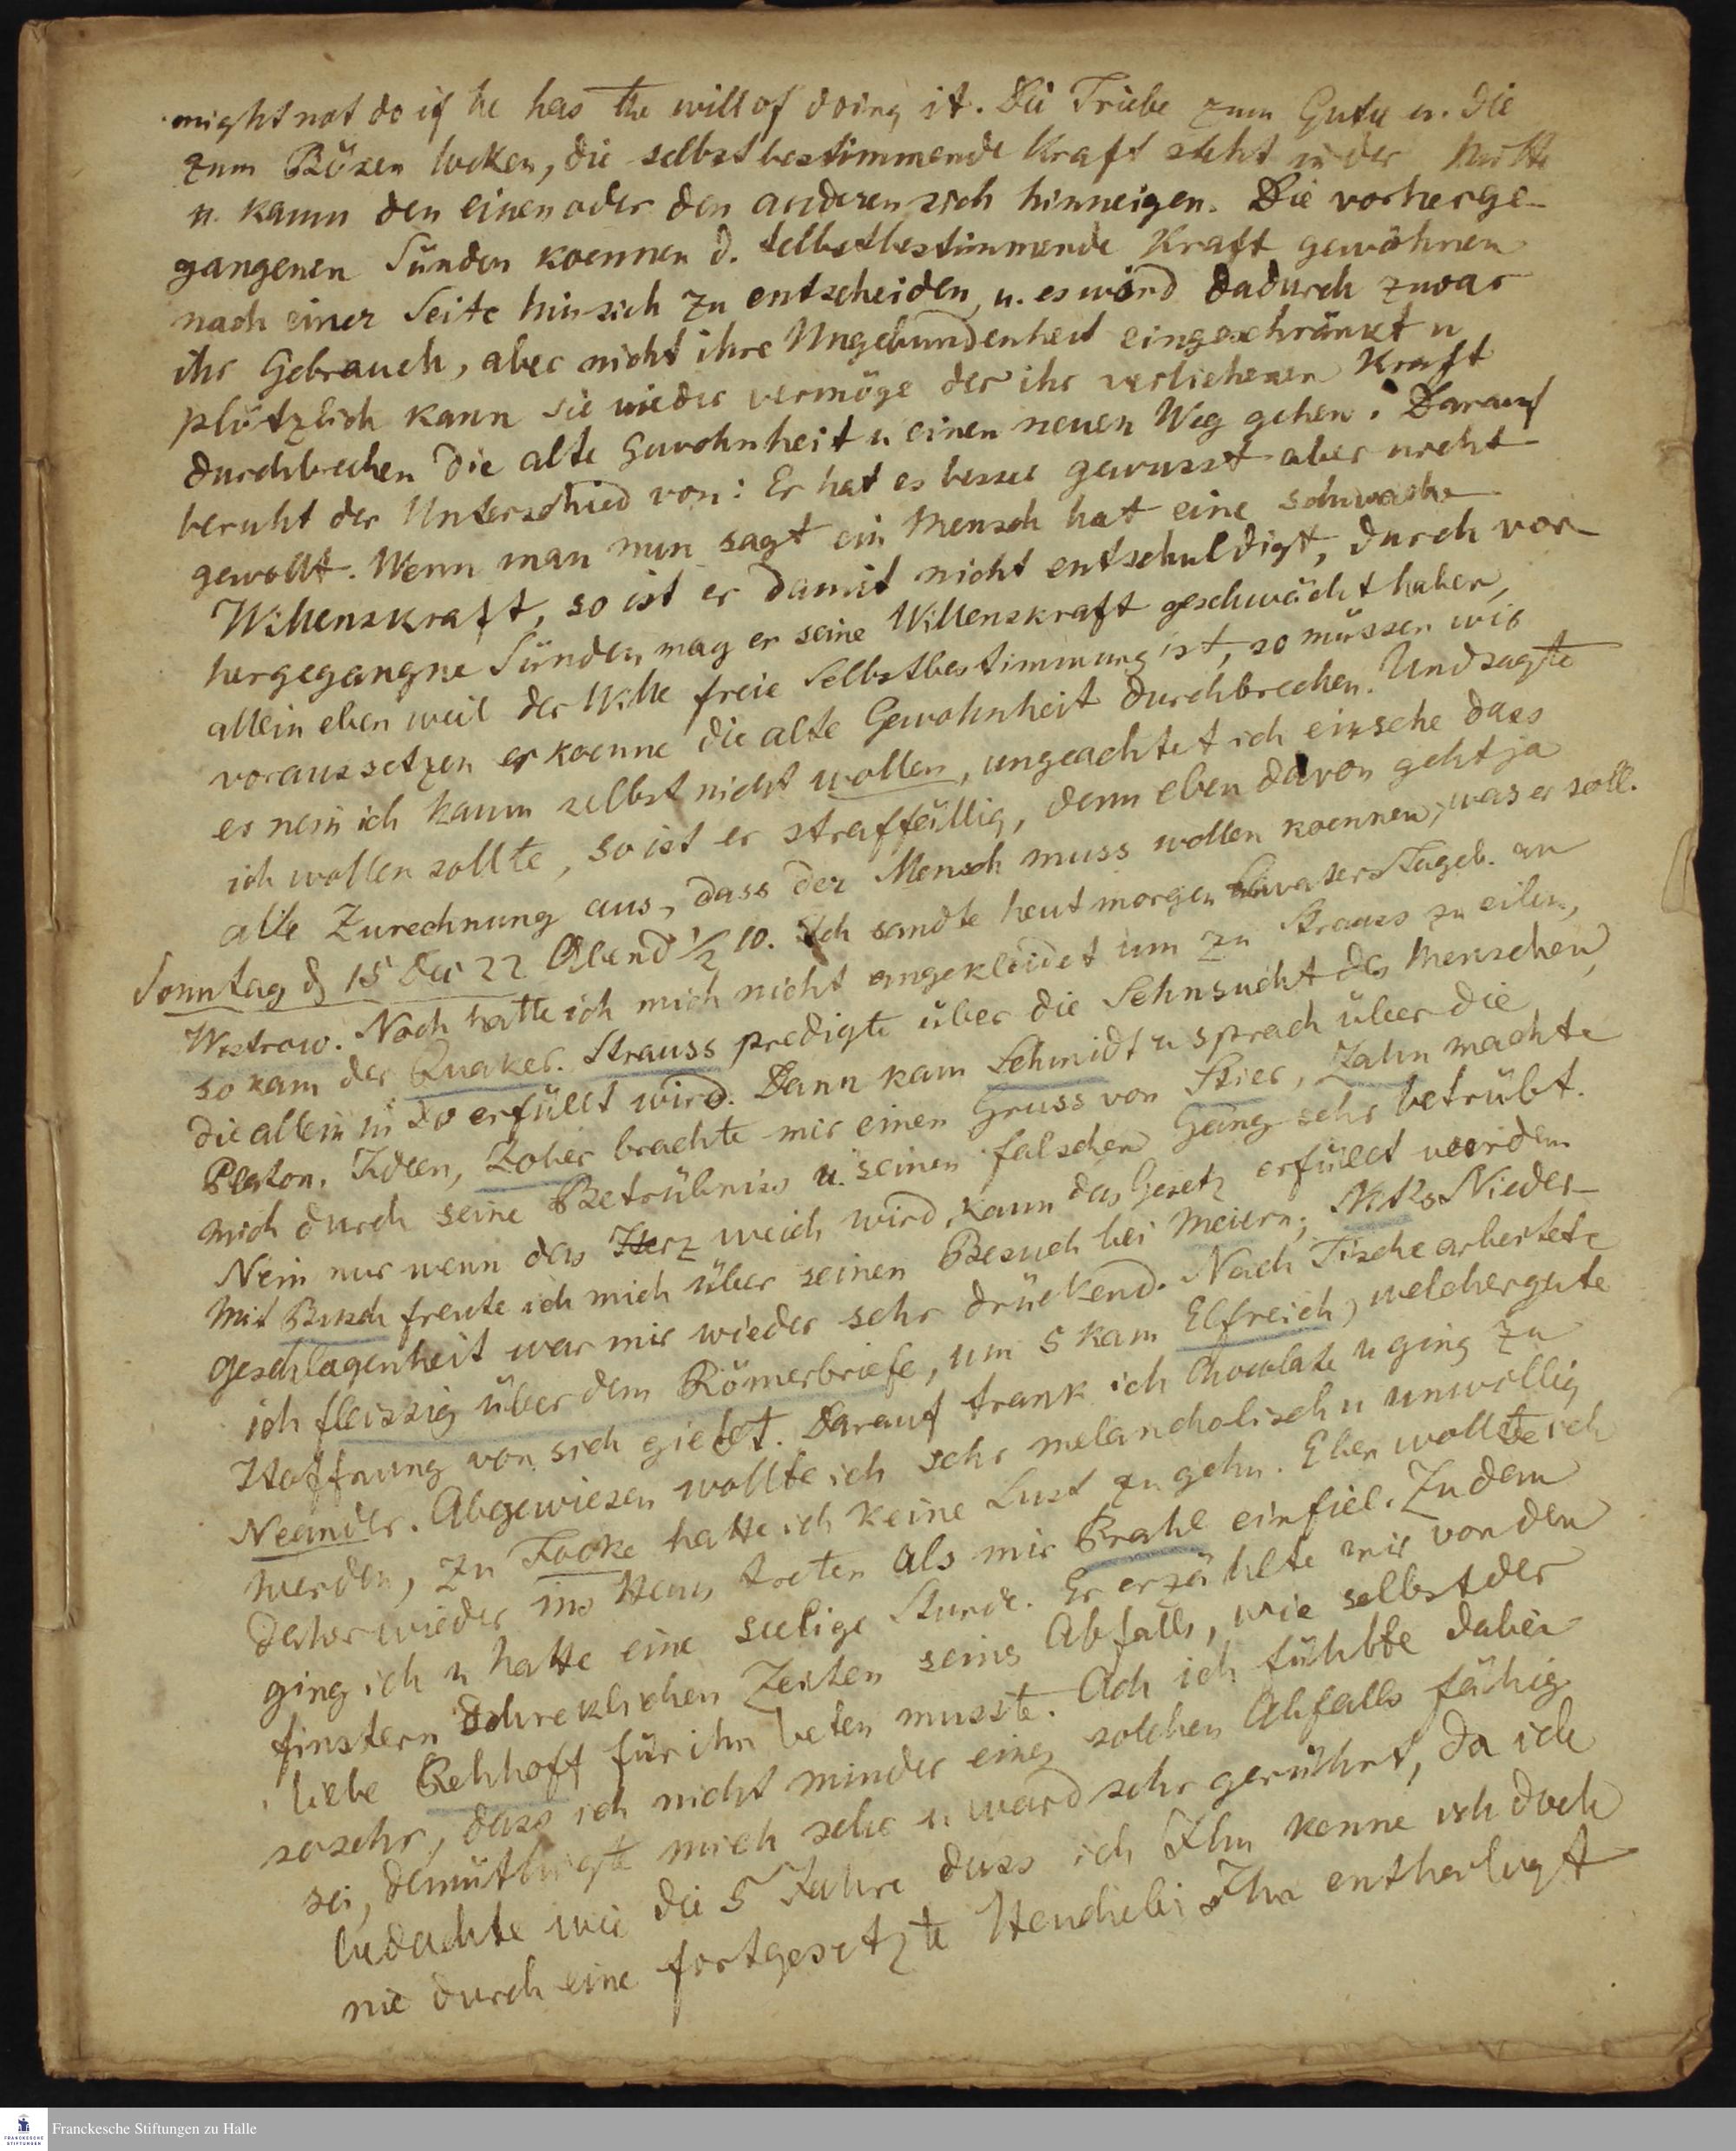 might not do if he has the will of doing it. Die Triebe zum Guten u. die
zum Bösen locken, die selbstbestimmende Kraft steht in der Mitte
u. kann den einen oder den anderen sich hinneigen. Die vorherge-
gangenen Sünden koennen d. selbstbestimmende Kraft gewöhnen
nach einer Seite hin sich zu entscheiden, u. es wird dadurch zwar
ihr Gebrauch, aber nicht ihre Ungebundenheit eingeschränkt u
plötzlich kann sie wieder vermöge der ihr verliehenen Kraft
durchbrechen die alte Gewohnheit u einen neuen Weg gehen. Darauf
beruht der Unterschied von: Er hat es besser gewusst aber nicht
gewollt. Wenn man nun sagt ein Mensch hat eine schwache
Willenskraft, so ist er damit nicht entschuldigt, durch vor-
hergegangne Sünden mag er seine Willenskraft geschwächt haben,
allein eben weil der Wille freie Selbstbestimmung ist, so müssen wir
voraussetzen er koenne die alte Gewohnheit durchbrechen. Und sagte
er nein ich kann selbst nicht wollen, ungeachtet ich einsehe dass
ich wollen sollte, so ist er straffällig, denn eben davon geht ja
alle Zurechnung aus, dass der Mensch muss wollen koennen, was er soll.
Sonntag d 15 Dec 22 Abend ½ 10. Ich sandte heut morgen Lavaters Tageb. an
Wistrow. Noch hatte ich mich nicht angekleidet um zu Strauss zu eilen,
so kam der Quaker. Strauss predigte über die Sehnsucht des Menschen,
die allein in erfüllt wird. Dann kam Schmidt u sprach über die
Platon. Ideen, Zober brachte mir einen Gruss von Stier, Zahn machte
mich durch seine Betrübniss u. seinen falschen Gang sehr betrübt.
Nein nur wenn das Herz weich wird, kann das Gesetz erfüllt werden
Mit Busch freute ich mich über seinen Besuch bei Meiern; Nieder-
geschlagenheit war mir wieder sehr drückend. Nach Tische arbeitete
ich fleissig über dem Römerbriefe, um 5 kam Elfreich, welcher gute
Hoffnung von sich giebt. Darauf trank ich Chocolate u ging zu
Neander. Abgewiesen wollte ich sehr melancholisch u unwillig
werden, zu Focke hatte ich keine Lust zu gehn. Eben wollte ich
daher wieder ins Haus treten als mir Prahl einfiel. Zu dem
ging ich u hatte eine seelige Stunde. Er erzählte mir von den
finstern schreklichen Zeiten seins Abfalls, wie selbst der
liebe Rehhoff für ihn beten musste. Ach ich fühlte dabei
so sehr, dass ich nicht minder eines solchen Abfalls fähig
sei, demüthigte mich sehr u ward sehr gerührt, da ich
bedachte wie die 5 Jahre dass ich Ihn kenne ich doch
nie durch eine fortgesetzte Heuchelei Ihn entheiligt
Franckesche Stiftungen zu Halle
FRANCKESCHE
STIFTUNGEN